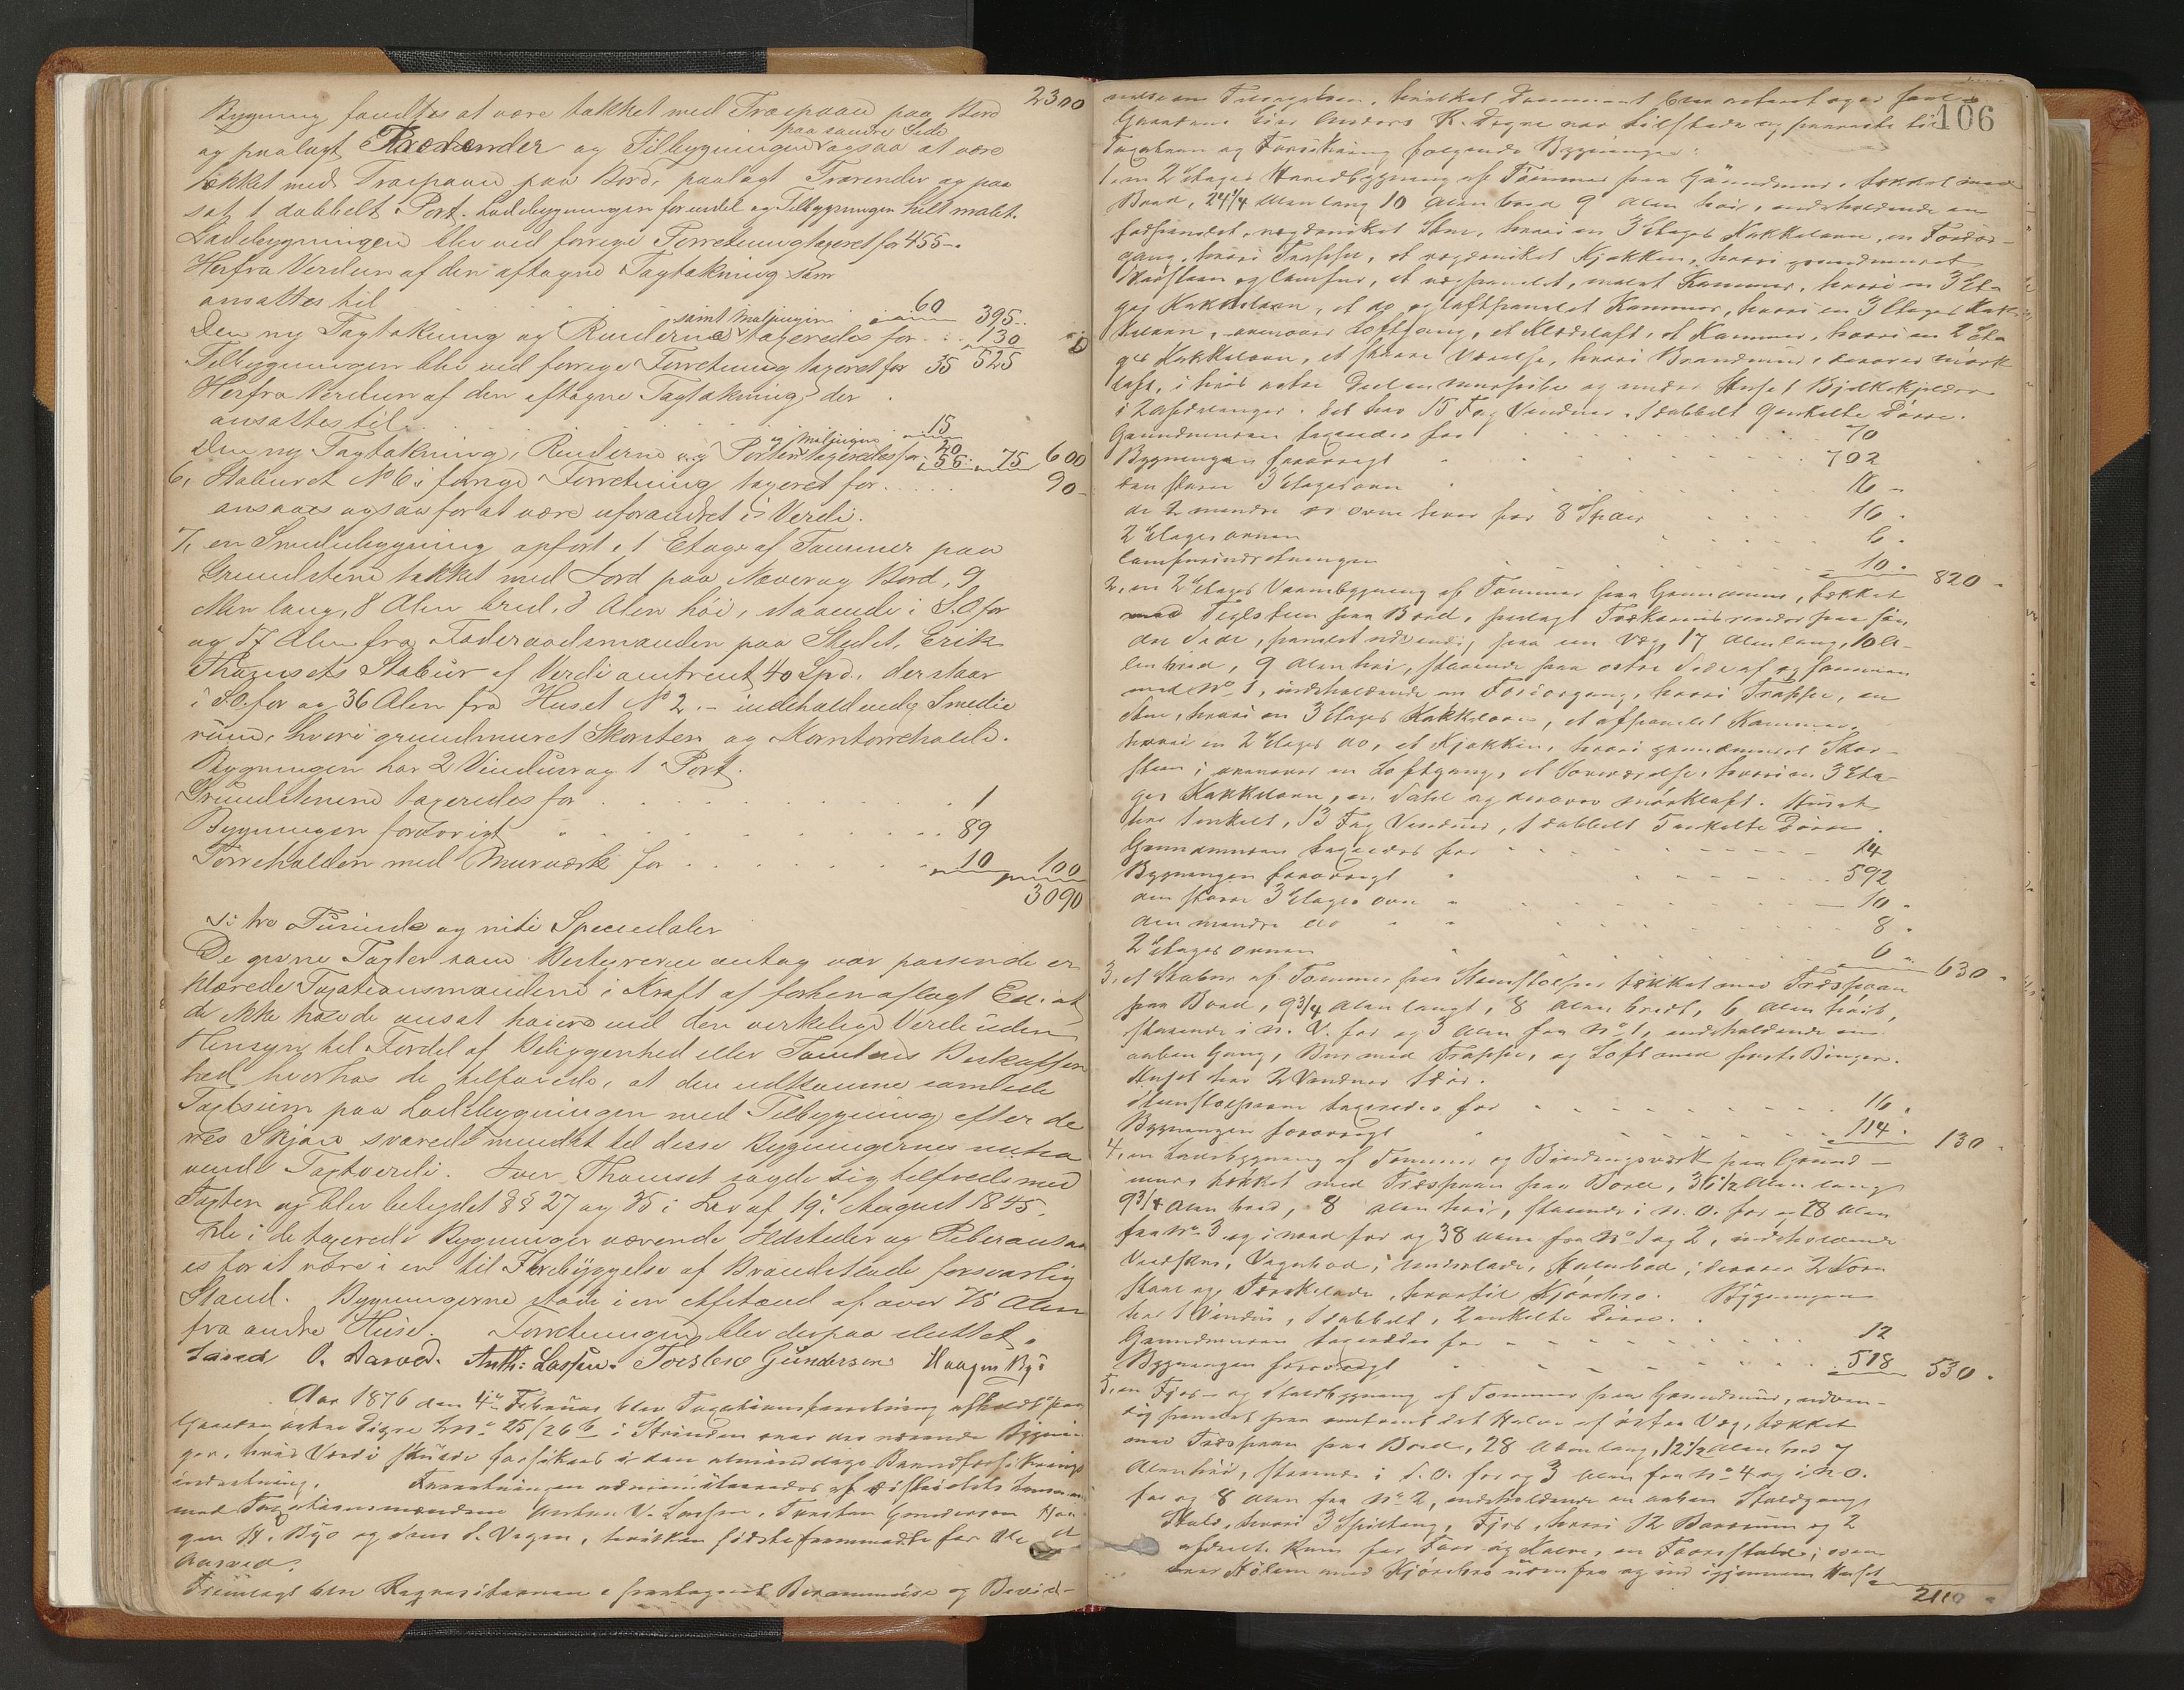 2300
Bygning fandtes at være tækket med Træspaan paa Bord
paa søndre Side
og paalagt Trærender og Tilbygningen ogsaa at være
tækket med Træspaan paa Bord, paalagt Trærender og paa
sat 1 dobbelt Port. Ladebygningen forendel og Tilbygningen helt malet.
Ladebygningen blev ved forrige Forretning taxeret for 455 -.
Herfra Verdien af den aftagne Tagtækning som
ansattes til 60 395 -
samt Malingen
Den ny Tagtækning og Renderne taxeredes for . . 130
Tilbygningen blev ved forrige Forretning taxeret for 35 525
Herfra Verdien af den aftagne Tagtækning der
ansattes til . . . 15
og Malingen 20
Den ny Tagtækning, Renderne og Porten taxeredes for . 55. 75 600
6, Staburet No 6 i forrige Forretning taxeret for . . . . 90 -
ansaaes ogsaa for at være uforandret i Verdi.
7, en Smedebygning opført i 1 Etage af Tømmer paa
Grundstene tækket med Jord paa Næver og Bord, 9
Alen lang, 8 Alen bred, 3 Alen høi, staaende i S.O. for
og 17 Alen fra Føderaadsmanden paa Stedet, Erik
Thamsets Stabur af Verdi omtrent 40 Spd., der staar
i S.O. for og 36 Alen fra Huset No 2. - indeholdende Smedie
rum, hvori grundmuret Skorsten og Korntørreholde.
Bygningen har 2 Vinduer og 1 Port.
Grundstenene taxeredes for . . . . . 1
Bygningen forøvrigt " . . . . . 89
Tørreholden med Murværk for . . . . . 10 100
3090
er: tre Tusinde og niti Speciedaler
De givne Taxter som Bestyreren antog var passende er
klærede Taxationsmændene i Kraft af forhen aflagt Ed: at
de ikke havde ansat høiere end den virkelige Verdi uden
Hensyn til Fordel af Beliggenhed eller Tomtens Beskaffen
hed hvorhos de tilføiede, at den udkomne samlede
Taxtsum paa Ladebygningen med Tilbygning efter de
res Skjøn svarede mindst til disse Bygningernes nuvæ
rende Taxtverdi. Iver Thamset sagde sig tilfreds med
Taxten og blev betydet §§ 27 og 35 i Lov af 19: August 1845.
De i de taxerede Bygninger værende Ildsteder og Piber ansaa
es for at være i en til Forebyggelse af Brandskade forsvarlig
Stand. Bygningerne staar i en Afstand af over 75 Alen
fra andre Huse. Forretningen blev derpaa sluttet.
O. Aarvod. Anth: Lassen. Torsten Gundersen Haagen Byø
Aar 1876 den 4de Februar blev Taxationsforretning afholdt paa
Gaarden østre Digre LNo 25/26 b i Strinden over der værende Bygnin-
ger, hvis Værdi skulde forsikres i den almindelige Brandforsikrings
indretning. Forretningen administreredes af Distriktets Lensmand
med Taxationsmændene Anthon V. Lassen, Torsten Gundersen Haa-
gen H. Byø og Jens S. Vagen, hvilken sidste fremmødte for Ole
Aarvod.
Fremlagt blev Requisitionen forsynet Berammelse og Bevid-
106
nelse om Tilsigelsen, hvilket Document blev noteret og er saal
Gaardens Eier Anders K. Digre var tilstede og paaviste til
Taxation og Forsikring følgende Bygninger:
1, en 2 Etages Hovedbygning af Tømmer paa Grundmur, tækket med
Bord, 24 1/4 Alen lang 10 Alen bred 9 Alen høi, indeholdende en
Stue, hvori en 3 Etages Kakkelovn, en Fordør-
gang, hvori Trappe, et Kjøkken, hvori grundmuret
Skorsten og Comfur, et malet Kammer, hvori en 3 Eta
ges Kakkelovn, et do og loftpanelet Kammer, hvori en 3 Etages Kak-
kelovn, ovenover Loftgang, et Klædeloft, et Kammer, hvori en 2 Eta
ges Kakkelovn, et større Værelse, hvori Brandmur, derover mørk
loft, i hvis østre Deel en murpibe og under Huset 1 Bjelkekjelder
i 2 Afdelinger. Det har 15 Fag Vinduer, 1 dobbelt 9 enkelte Døre.
Grundmuren taxeredes for . . . . . 70
Bygningen forøvrigt " . . . . . 702
den større 3 Etagesovn " . . . . . 16 -
de 2 mindre do ovne hver for 8 Spd . . . 16 .
2 Etages ovnen . . . . . 6 .
Comfurindretningen . . . . . 10 . 820 -
2, en 2 Etages Vaanebygning af Tømmer paa Grundmur, tækket
med Teglsteen paa Bord, paalagt Trækarnisrender paa søn
dre Side, panelet udvendig paa en Væg, 17 Alen lang, 10 A-
len bred, 9 Alen høi, staaende paa østre Side af og sammen
med No 1, indeholdende en Fordørgang, hvori Trappe, en
Stue, hvori en 3 Etages Kakkelovn, et afpanelet Kammer,
hvori en 2 Etages do, et Kjøkken, hvori grundmuret Skor-
steen; ovenover en Loftgang, et Soveværelse, hvori en 3 Eta-
ges Kakkelovn, en Sahl og derover mørkloft. Huset
har 1 enkelt, 13 Fag Vinduer, 1 dobbelt 5 enkelte Døre.
Grundmuren taxeredes for . . . . . 14
Bygningen forøvrigt " . . . . . 592
den større 3 Etages ovn " . . . . . 10 -
den mindre do " " . . . . . 8 .
2 Etages ovnen " . . . . . 6 - 630 -
3, et Stabur af Tømmer paa Steenstolper tækket med Træspaan
paa Bord, 9 3/4 Alen langt, 8 Alen bredt, 6 Alen høit,
staaende i N. V. for og 3 Alen fra No 1, indeholdende en
aaben Gang, Bur med Trappe, og Loft med faste Binger.
Huset har 2 Vinduer 1 Dør.
Steenstolperne taxeredes for . . . . . 16 .
Bygningen forøvrigt " . . . . . 114 . 130 -
4, en Ladebygning af Tømmer og Bindingsværk paa Grund-
mur tækket med Træspaan paa Bord, 36 1/2 Alen lang
9 3/4 Alen bred, 8 Alen høi, staaende i N. O. for og 28 Alen
fra No 3 og i nord for og 38 Alen fra No 1 og 2, indeholdende
Vedskur, Vognbod, Underlade, Halmbod; derover 2 Korn
staal og Træskelade, hvortil Kjørebro. Bygningen
har 1 Vindu, 1 dobbelt, 2 enkelte Døre.
Grundmuren taxeredes for . . . . . 12
Bygningen forøvrigt " . . . . . 518 530 .
5, en Fjøs- og Staldbygning af Tømmer paa Grundmur, udven-
dig panelet paa omtrent det Halve af østre Væg, tækket
med Træspaan paa Bord, 28 Alen lang, 12 1/2 Alen bred 7
Alen høi, staaende i S. O. for og 3 Alen fra No 4 og i N. O.
for og 8 Alen fra No 2, indeholdende en aaben Staldgang
Stald, hvori 3 Spiltoug, Fjøs, hvori 12 Baasrum og 2
afdeelte Rum for Faar og Kalve, en Foderstald; oven
over Hølem med Kjørebro udenfra og ind igjennem Huset
2110 -